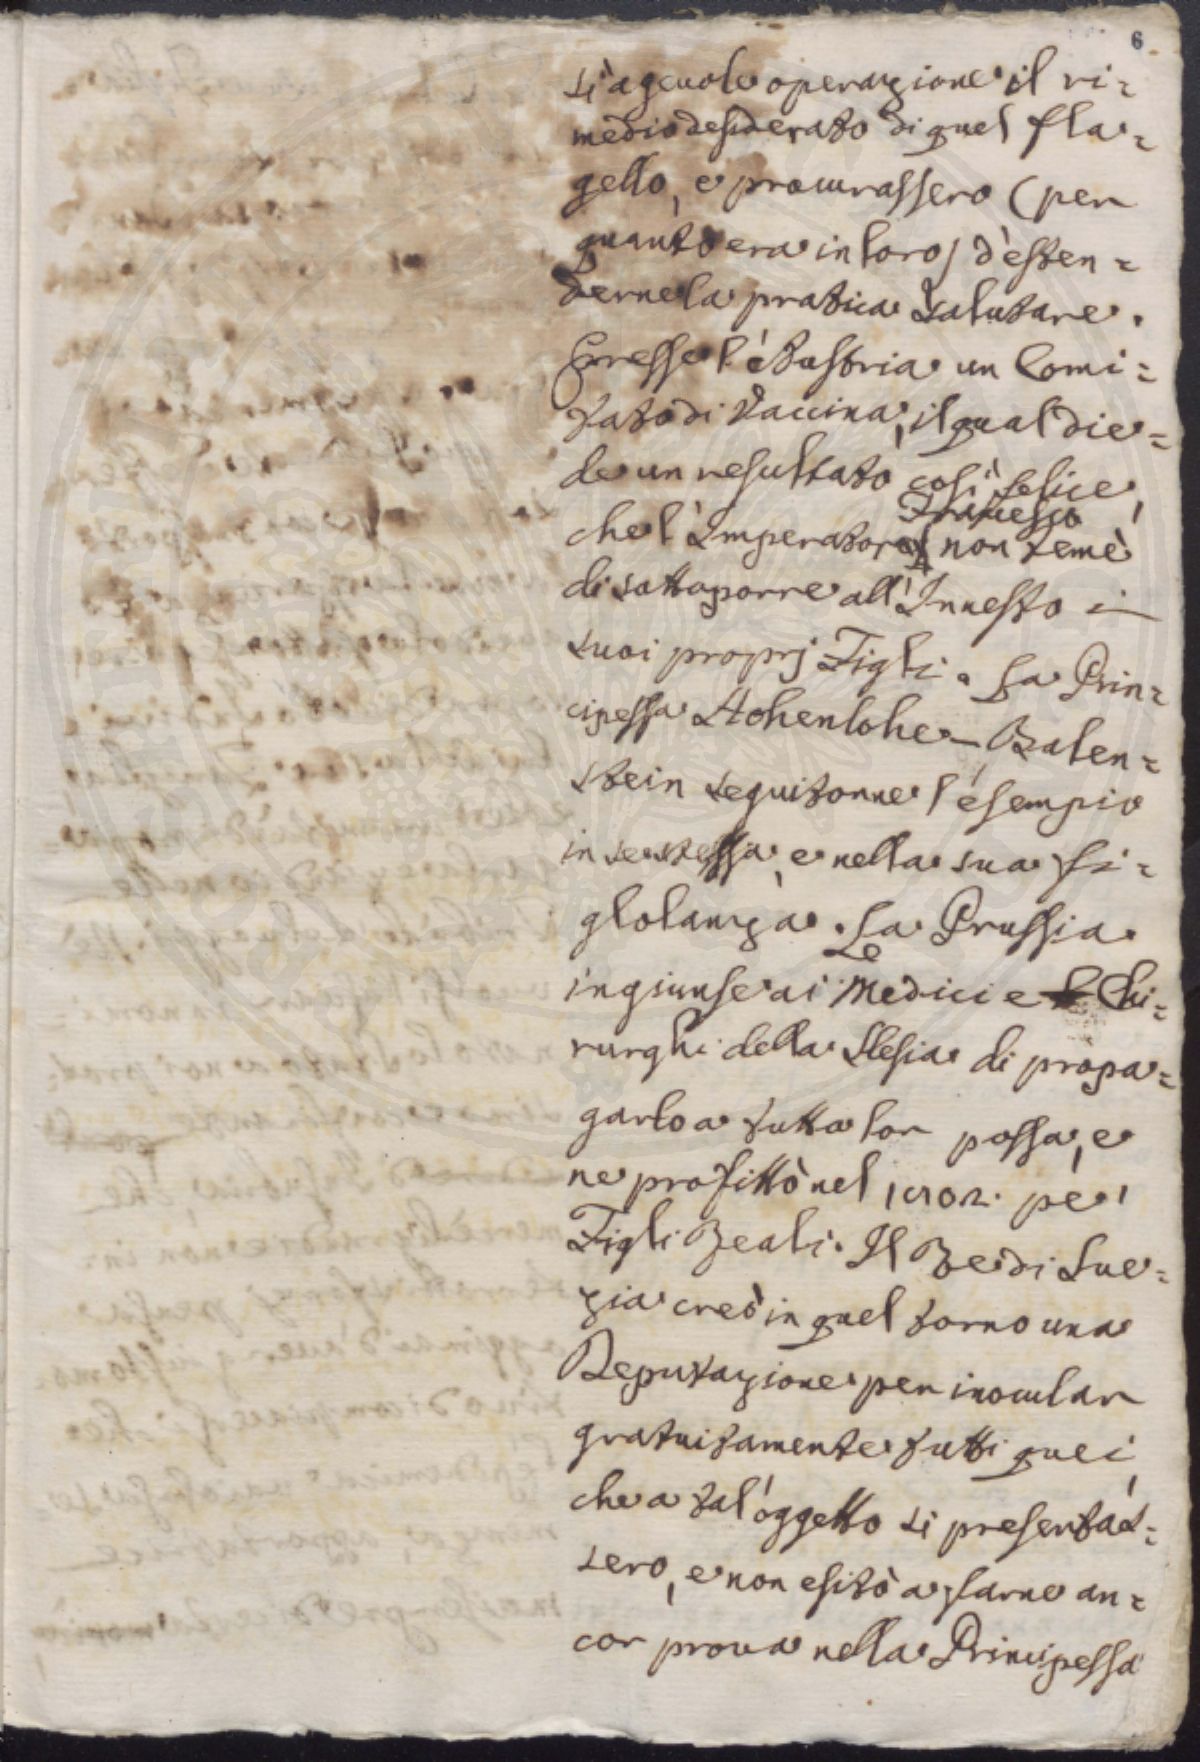 6
sì agevole operazione il ri=
medio desiderato di quel fla=
gello, e procurassero (per
quanto era in loro) d'esten=
derne la pratica salutare.
Eresse l'Austria un Comi=
tato di Vaccina, il qual die=
de un resultato così felice,
Francesco
che l'Imperatore non temè
di sottoporre all'Innesto i
suoi proprj Figli. La Prin=
cipessa Hohenlohe-Balen=
stein seguitonne l'esempio
in se stessa, e nella sua fi=
gliolanza. La Prussia
ingiunse ai Medici e Chi=
rurghi della Slesia di propa=
garlo a tutta lor possa, e
ne profittò nel 1802. pe'
Figli Reali. Il Re di Sve=
zia creò in quel torno una
Deputazione per inocular
gratuitamente tutti quei,
che a tal'oggetto si presentas=
sero, e non esitò a farne an=
cor prova nella Principessa